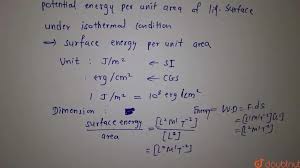 potential energy per unit area of liq. surface
under isothermal condition
⇒ surface energy per unit area
Unit : J/m² ← SI
erg/cm² ← CGS
1 J/m² = 10³ erg/cm²
Dimension :
Energy = W.D = F.ds
surface energy / area = [L²M¹T⁻²] / [L²]
= [L¹M¹T⁻²][L¹]
= [L²M¹T⁻²]
= [L⁰M¹T⁻²]
doubtnut